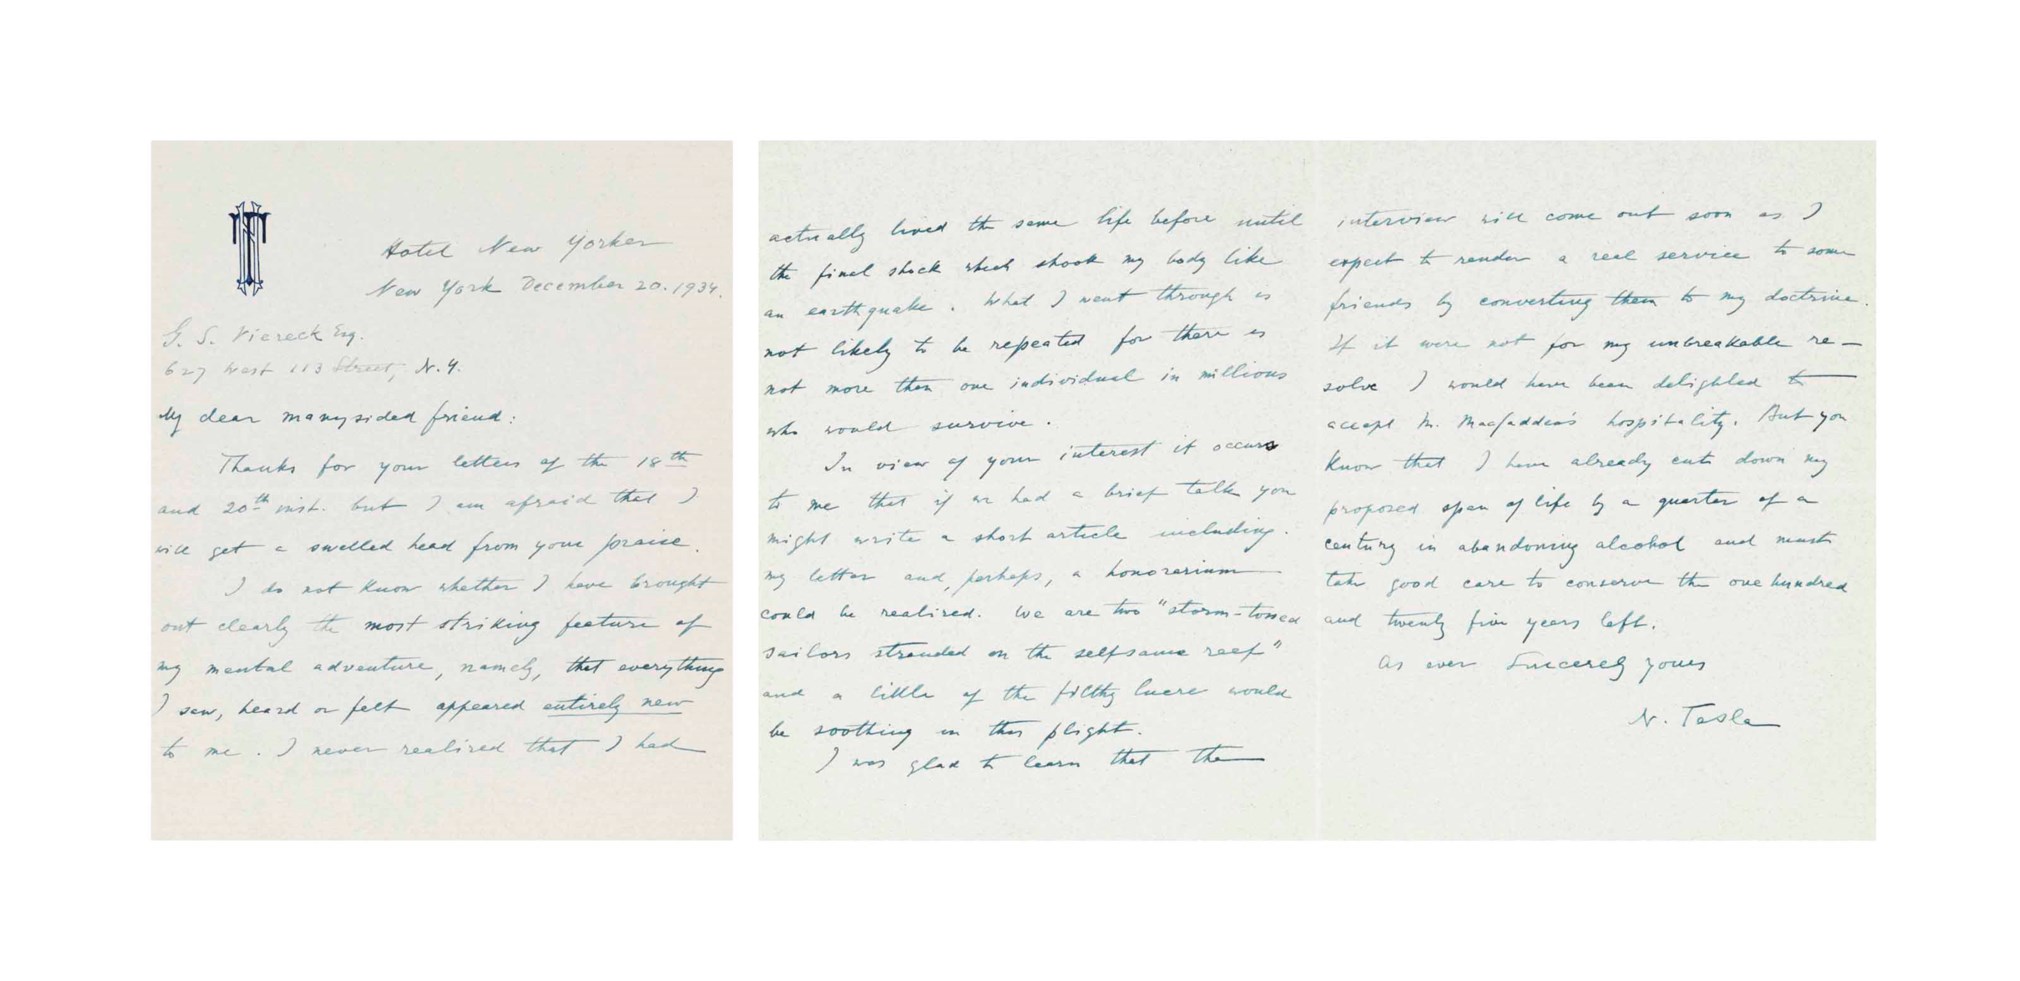 Hotel New Yorker
New York December 20. 1934.
G. S. Viereck Esq.
627 West 113 Street, N.Y.
My dear manysided friend:
Thanks for your letters of the 18th
and 20th inst. but I am afraid that I
will get a swelled head from your praise.
I do not know whether I have brought
out clearly the most striking feature of
my mental adventure, namely, that everything
I saw, heard or felt appeared entirely new
to me. I never realized that I had
actually lived the same life before until
the final shock which shook my body like
an earthquake. What I went through is
not likely to be repeated for there is
not more than one individual in millions
who would survive.
In view of your interest it occurs
to me that if we had a brief talk you
might write a short article including
my letter and, perhaps, a honorarium
could be realized. We are two "storm-tossed
sailors stranded on the selfsame reef"
and a little of the filthy lucre would
be soothing in this plight.
I was glad to learn that the
interview will come out soon as I
expect to render a real service to some
friends by converting them to my doctrine.
If it were not for my unbreakable re-
solve I would have been delighted to
accept M. Macfadden's hospitality. But you
know that I have already cut down my
proposed span of life by a quarter of a
century in abandoning alcohol and must
take good care to conserve the one hundred
and twenty five years left.
As ever Sincerely yours
N. Tesla